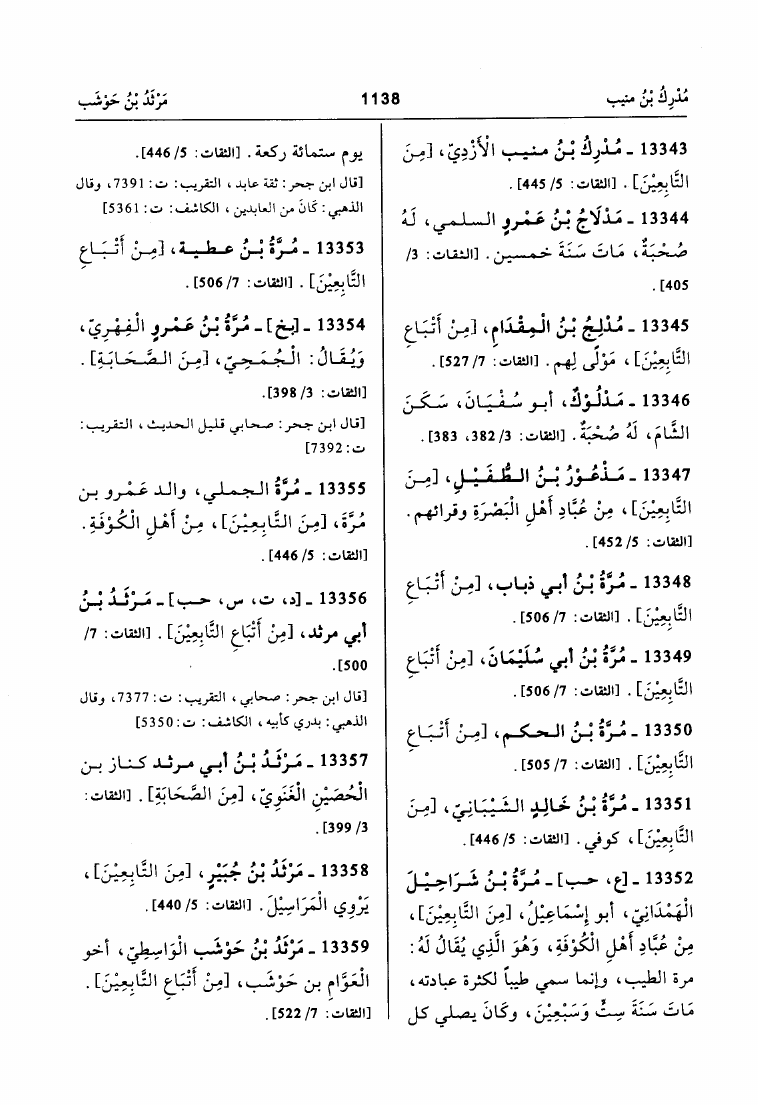 مُدْرِكُ بْنُ منيب
1138
مَرْثَدُ بْنُ حَوْشَب
13343 ـ مُدْرِكُ بْنُ منيب الْأَزْدِيّ، [مِنَ
التَّابِعِيْنَ]. [الثقات: 5/ 445].
13344 ـ مَدْلَاجُ بْنُ عَمْرٍو السلمي، لَهُ
صُحْبَةٌ، مَاتَ سَنَةَ خمسين. [الثقات: 3/
405].
13345 ـ مُدْلِجُ بْنُ الْمِقْدَامِ، [مِنْ أَتْبَاعِ
التَّابِعِيْنَ]، مَوْلًى لهم. [الثقات: 7/ 527].
13346 ـ مَدْلُوْكٌ، أبو سُفْيَانَ، سَكَنَ
الشَّامَ، لَهُ صُحْبَةٌ. [الثقات: 3/ 382، 383].
13347 ـ مَذْعُوْرُ بْنُ الطُّفَيْلِ، [مِنَ
التَّابِعِيْنَ]، مِنْ عُبَّادِ أَهْلِ الْبَصْرَةِ وقرائهم.
[الثقات: 5/ 452].
13348 ـ مُرَّةُ بْنُ أبي ذباب، [مِنْ أَتْبَاعِ
التَّابِعِيْنَ]. [الثقات: 7/ 506].
13349 ـ مُرَّةُ بْنُ أبي سُلَيْمَانَ، [مِنْ أَتْبَاعِ
التَّابِعِيْنَ]. [الثقات: 7/ 506].
13350 ـ مُرَّةُ بْنُ الحكم، [مِنْ أَتْبَاعِ
التَّابِعِيْنَ]. [الثقات: 7/ 505].
13351 ـ مُرَّةُ بْنُ خَالِدٍ الشَّيْبَانِيّ، [مِنَ
التَّابِعِيْنَ]، كوفي. [الثقات: 5/ 446].
13352 ـ [ع، حب] ـ مُرَّةُ بْنُ شَرَاحِيْلَ
الْهَمْدَانِيّ، أبو إِسْمَاعِيْلُ، [مِنَ التَّابِعِيْنَ]،
مِنْ عُبَّادِ أَهْلِ الْكُوْفَةِ، وَهُوَ الَّذِي يُقَالُ لَهُ:
مرة الطيب، وإنما سمي طيباً لكثرة عبادته،
مَاتَ سَنَةَ سِتٍّ وَسَبْعِيْنَ، وكَانَ يصلي كل
يوم ستمائة ركعة. [الثقات: 5/ 446].
[قال ابن حجر: ثقة عابد، التقريب: ت: 7391، وقال
الذهبي: كَانَ من العابدين، الكاشف: ت: 5361]
13353 ـ مُرَّةُ بْنُ عطية، [مِنْ أَتْبَاعِ
التَّابِعِيْنَ]. [الثقات: 7/ 506].
13354 ـ [بخ] ـ مُرَّةُ بْنُ عَمْرٍو الْفِهْرِيّ،
وَيُقَالُ: الْجُمَحِيّ، [مِنَ الصَّحَابَةِ].
[الثقات: 3/ 398].
[قال ابن حجر: صحابي قليل الحديث، التقريب:
ت: 7392]
13355 ـ مُرَّةُ الجملي، والد عَمْرو بن
مُرَّةَ، [مِنَ التَّابِعِيْنَ]، مِنْ أَهْلِ الْكُوْفَةِ.
[الثقات: 5/ 446].
13356 ـ [د، ت، س، حب] ـ مَرْثَدُ بْنُ
أبي مرثد، [مِنْ أَتْبَاعِ التَّابِعِيْنَ]. [الثقات: 7/
500].
[قال ابن حجر: صحابي، التقريب: ت: 7377، وقال
الذهبي: بدري كأبيه، الكاشف: ت: 5350]
13357 ـ مَرْثَدُ بْنُ أبي مرثد كناز بن
الْحُصَيْنِ الْغَنَوِيّ، [مِنَ الصَّحَابَةِ]. [الثقات:
3/ 399].
13358 ـ مَرْثَدُ بْنُ جُبَيْرٍ، [مِنَ التَّابِعِيْنَ]،
يَرْوِي الْمَرَاسِيْلَ. [الثقات: 5/ 440].
13359 ـ مَرْثَدُ بْنُ حَوْشَب الْوَاسِطِيّ، أخو
الْعَوَّامِ بن حَوْشَب، [مِنْ أَتْبَاعِ التَّابِعِيْنَ].
[الثقات: 7/ 522].